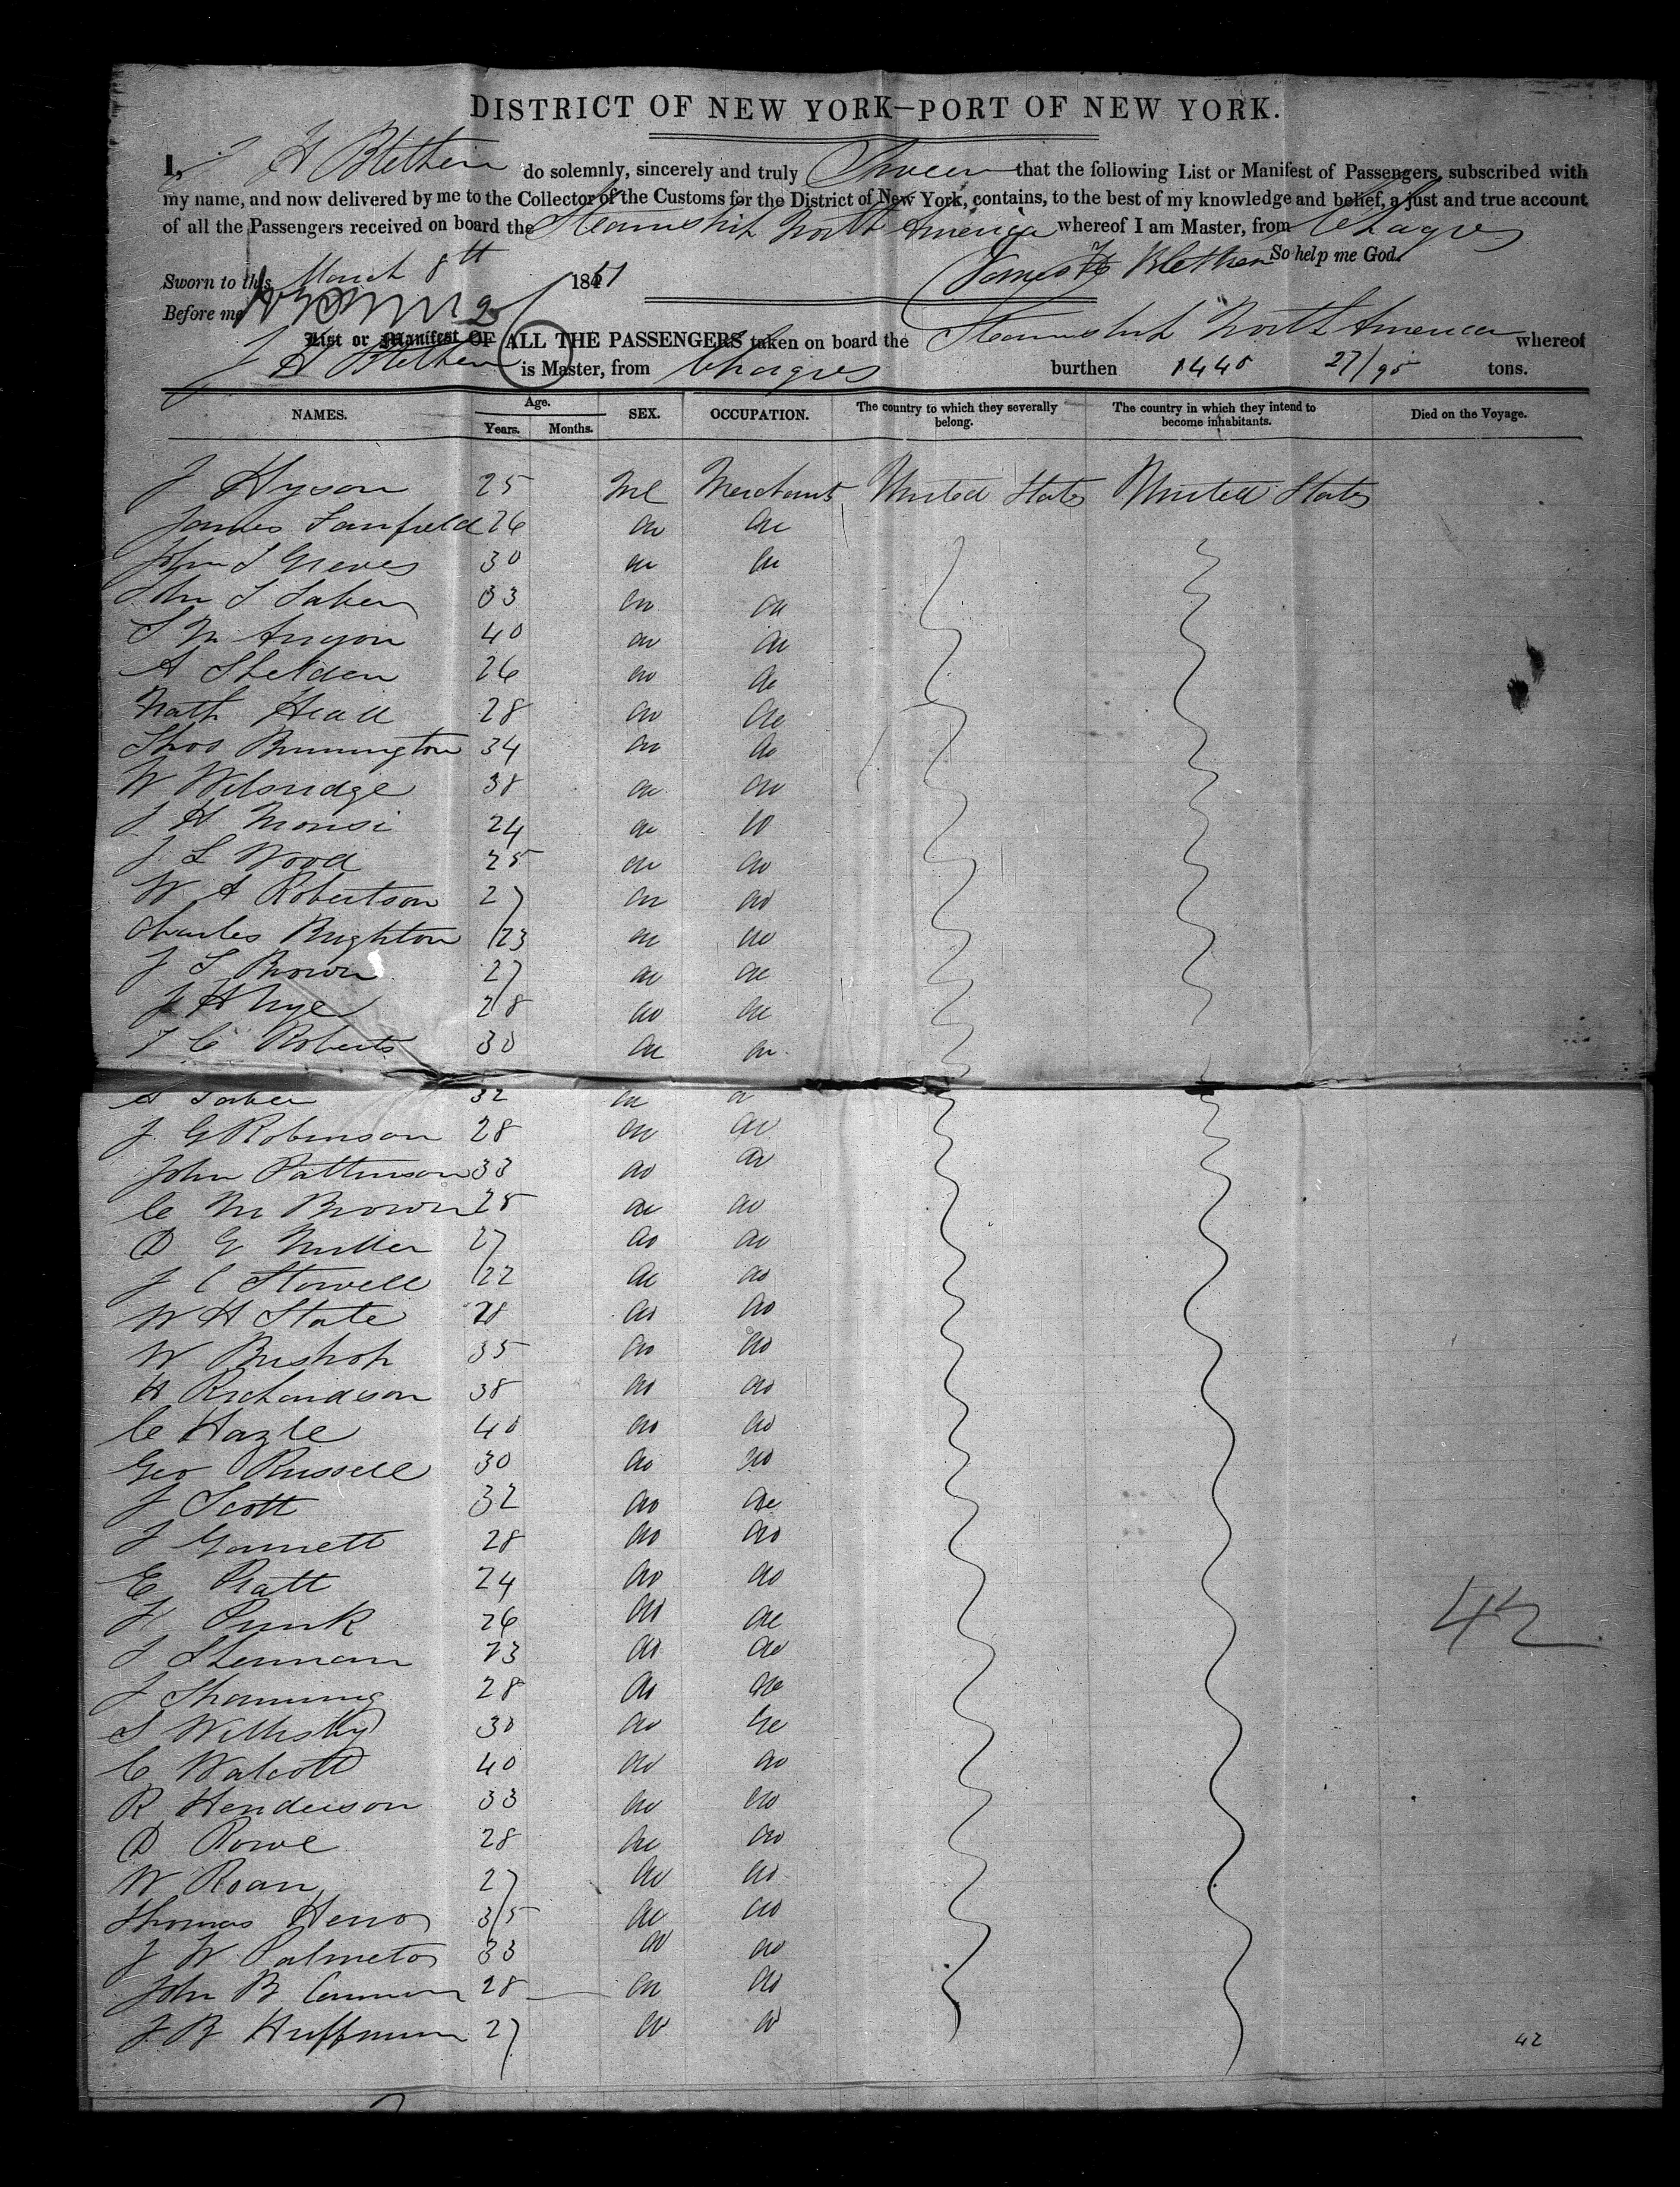 DISTRICT OF NEW YORK—PORT OF NEW YORK.
I, J H Blethen do solemnly, sincerely and truly Swear that the following List or Manifest of Passengers, subscribed with
my name, and now delivered by me to the Collector of the Customs for the District of New York, contains, to the best of my knowledge and belief, a just and true account
of all the Passengers received on board the Steamship North America whereof I am Master, from Chagres
So help me God.
Sworn to this March 8th 1851 James H Blethen
Before me
List or Manifest OF ALL THE PASSENGERS taken on board the Steamship North America whereof
J H Blethen is Master, from Chagres burthen 1440 27/95 tons.
NAMES. Age. Years. Months. SEX. OCCUPATION. The country to which they severally belong. The country in which they intend to become inhabitants. Died on the Voyage.
J Hyson 25 Ml Merchant United States United States
James Lanfield 26 do do
John S Greves 30 do do
John S Saben 33 do do
S M 40 do do
A Shelden 26 do do
Nath Head 28 do do
Thos Bunnington 34 do do
W Wilsridge 38 do do
J H Monsi 24 do do
J L Wood 25 do do
W A Robertson 27 do do
Charles Brighton 23 do do
J S Brown 27 do do
J H Nye 28 do do
T C Roberts 30 do do
32 do do
J. G Robinson 28 do do
John Pattinson 33 do do
C M Brown 25 do do
D G Miller 27 do do
J C Stowell 22 do do
W H State 28 do do
W Bishop 35 do do
H Richardson 38 do do
C Hazle 40 do do
Geo Russell 30 do do
J Scott 32 do do
J Garnett 28 do do
E Pratt 24 do do
H Punk 26 do do
J Shennan 23 do do
J 28 do do
S Willisby 30 do do
C Walcott 40 do do
R Henderson 33 do do
D Rowe 28 do do
W Roan 27 do do
Thomas Heno 35 do do
J W Palmeto 33 do do
John B 28 do do
J. B Huffman 27 do do
42
42